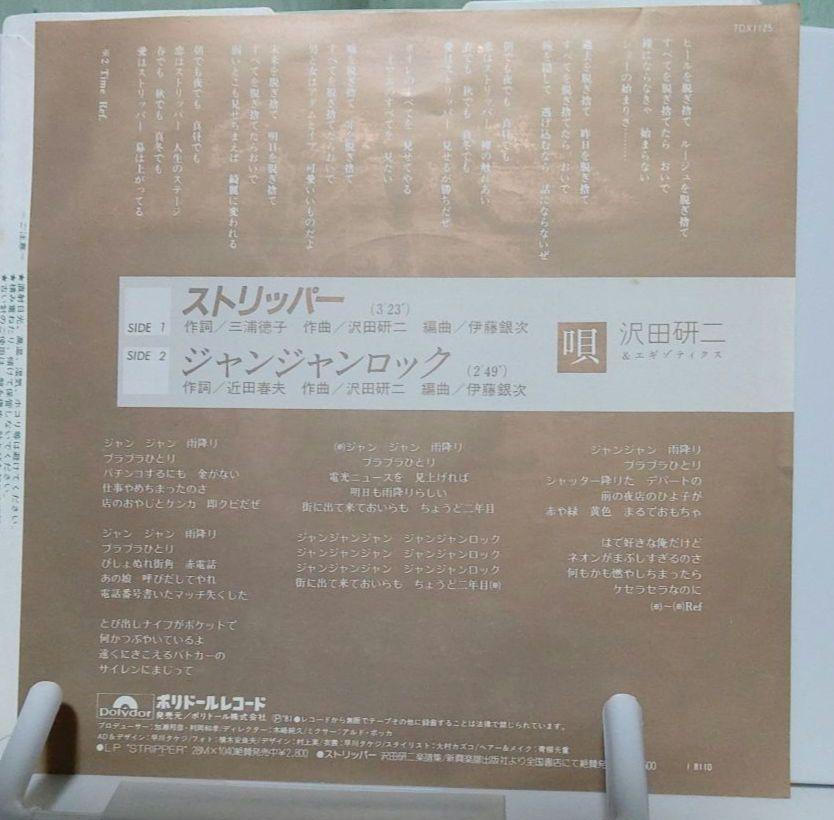 TDX1125
ヒールを脱ぎ捨て ルージュを脱ぎ捨て
すべてを脱ぎ捨てたら おいで
裸にならなきゃ 始まらない
ショーの始まりさ………
過去を脱ぎ捨て 昨日を脱ぎ捨て
すべてを脱ぎ捨てたら おいで
瞳を隠して 逃げ込むなら 話にならないぜ
朝でも夜でも 真昼でも
恋はストリッパー 裸の
春でも 秋でも 真冬でも
愛はストリッパー 見せるが勝ちだぜ
すべてを 見せてやる
すべてを 見たい
すべてを脱ぎ捨てたらおいで
男と女はアダムとイブ 可愛いいものだよ
未来を脱ぎ捨て 明日を脱ぎ捨て
すべてを脱ぎ捨てたらおいで
弱いとこも見せちまえば 綺麗に変われる
朝でも夜でも 真昼でも
恋はストリッパー 人生のステージ
春でも 秋でも 真冬でも
愛はストリッパー 幕は上がってる
※2 Time Ref.
SIDE 1 ストリッパー (3′23″)
作詞／三浦徳子 作曲／沢田研二 編曲／伊藤銀次
SIDE 2 ジャンジャンロック (2′49″)
作詞／近田春夫 作曲／沢田研二 編曲／伊藤銀次
唄 沢田研二
＆エキゾティクス
ジャン ジャン 雨降り
ブラブラひとり
パチンコするにも 金がない
仕事やめちまったのさ
店のおやじとケンカ 即クビだぜ
ジャン ジャン 雨降り
ブラブラひとり
びしょぬれ街角 赤電話
あの娘 呼びだしてやれ
電話番号書いたマッチ失くした
とび出しナイフがポケットで
何かつぶやいているよ
遠くにきこえるパトカーの
サイレンにまじって
(※)ジャン ジャン 雨降り
ブラブラひとり
電光ニュースを 見上げれば
明日も雨降りらしい
街に出て来ておいらも ちょうど二年目
ジャンジャンジャン ジャンジャンロック
ジャンジャンジャン ジャンジャンロック
ジャンジャンジャン ジャンジャンロック
街に出て来ておいらも ちょうど二年目(※)
ジャン ジャン 雨降り
ブラブラひとり
シャッター降りた デパートの
前の夜店のひよ子が
赤や緑 黄色 まるでおもちゃ
はで好きな俺だけど
ネオンがまぶしすぎるのさ
何もかも燃やしちまったら
ケセラセラなのに
(※)～(※)Ref
Polydor ポリドールレコード
発売元／ポリドール株式会社 Ⓟ'81●レコードから無断でテープその他に録音することは法律で禁じられています。
プロデューサー：加瀬邦彦・
ディレクター：木﨑純久／ミクサー：アルド・ボッカ
AD＆デザイン：早川タケジ／フォト：
／デザイン：村上実／衣裳：早川タケジ／スタイリスト：大村カズコ／ヘアー＆メイク：青柳夫量
●LP "STRIPPER" 28MX1040絶賛発売中¥2,800 ●ストリッパー 沢田研二楽譜集／新興楽譜出版社より全国書店にて絶賛発
8110
ご注意
★直射日光、高温、湿気、ホコリ等は避けてください。